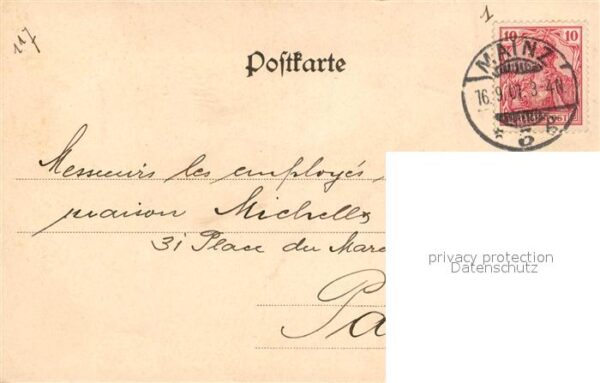 117
1
10 10
Postkarte
MAINZ
16.9.01. 3-4N
Messieurs les employés
maison Michells
31 Place du Marc
Pa
privacy protection
Datenschutz